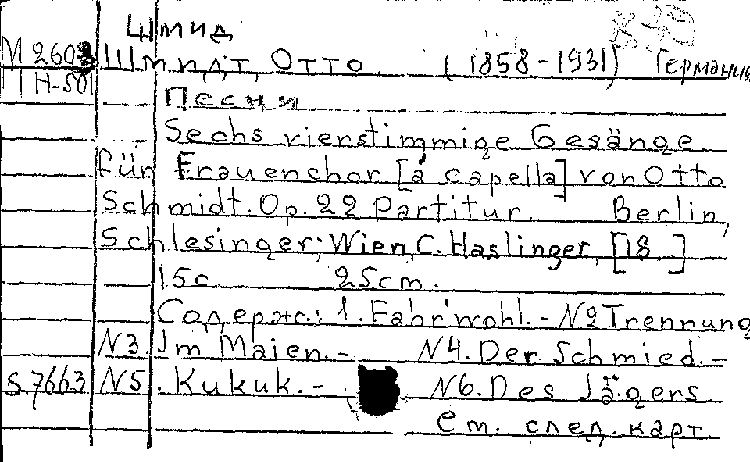 Шмид
М 2603 Шмидт, Отто (1858-1931) Германия
П Н-50
Песни
Sechs vierstimmige Gesänge
für Frauenchor [à capella] von Otto
Schmidt. Op. 22 Partitur. Berlin,
Schlesinger; Wien, C. Haslinger, [18 ]
15c. 25cm.
Содерж.: 1. Fahr'wohl. - №2 Trennung
N3. Im Maien. - N4. Der Schmied. -
S.7663 N5. Kukuk. - N6. Des Jägers
См. след. карт.